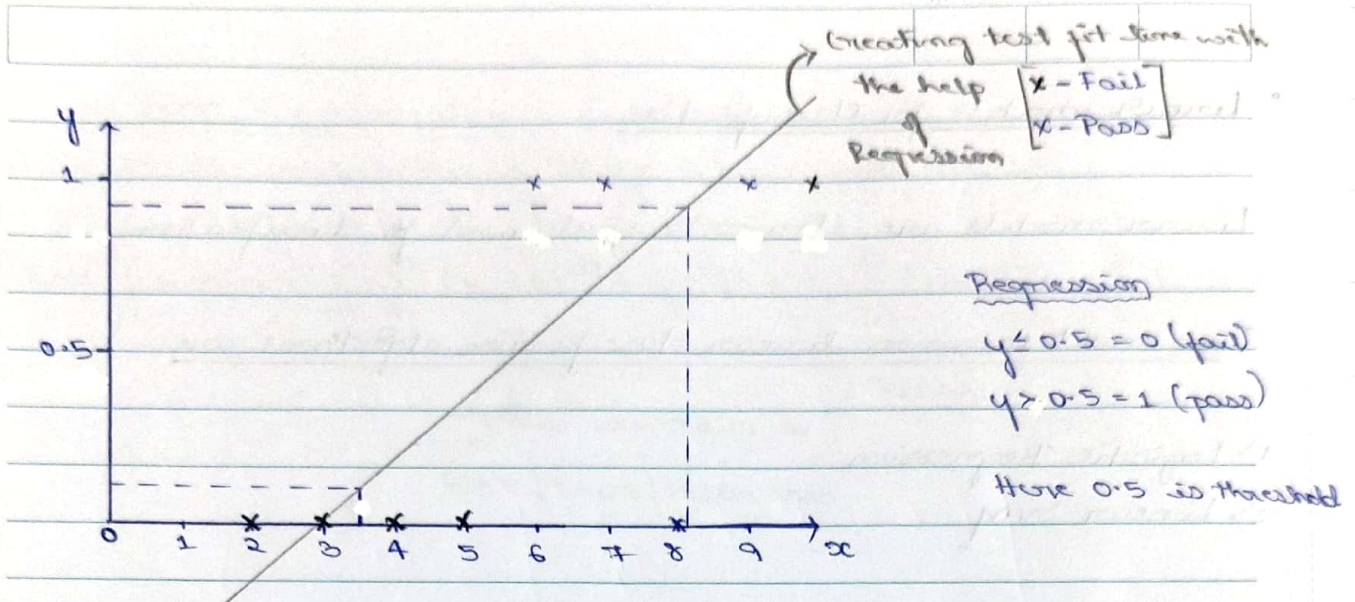 Creating test fit line with
the help [x - Fail
of x - Pass]
Regression
y
1
0.5
0 1 2 3 4 5 6 7 8 9 x
Regression
y ≤ 0.5 = 0 (fail)
y > 0.5 = 1 (pass)
Here 0.5 is threshold